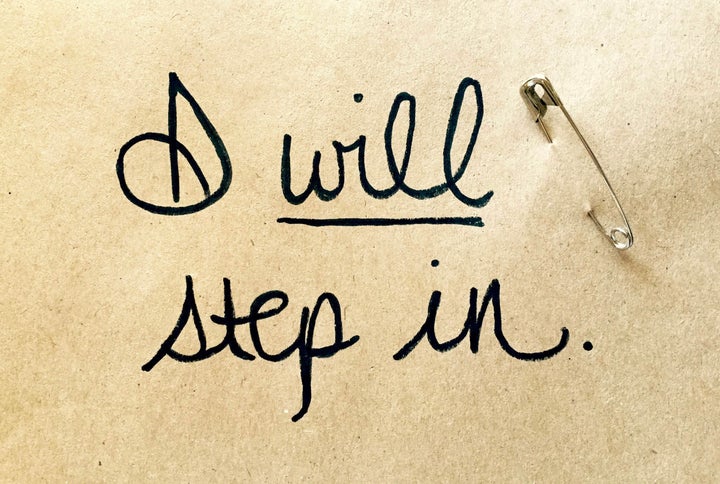 I will
step in.